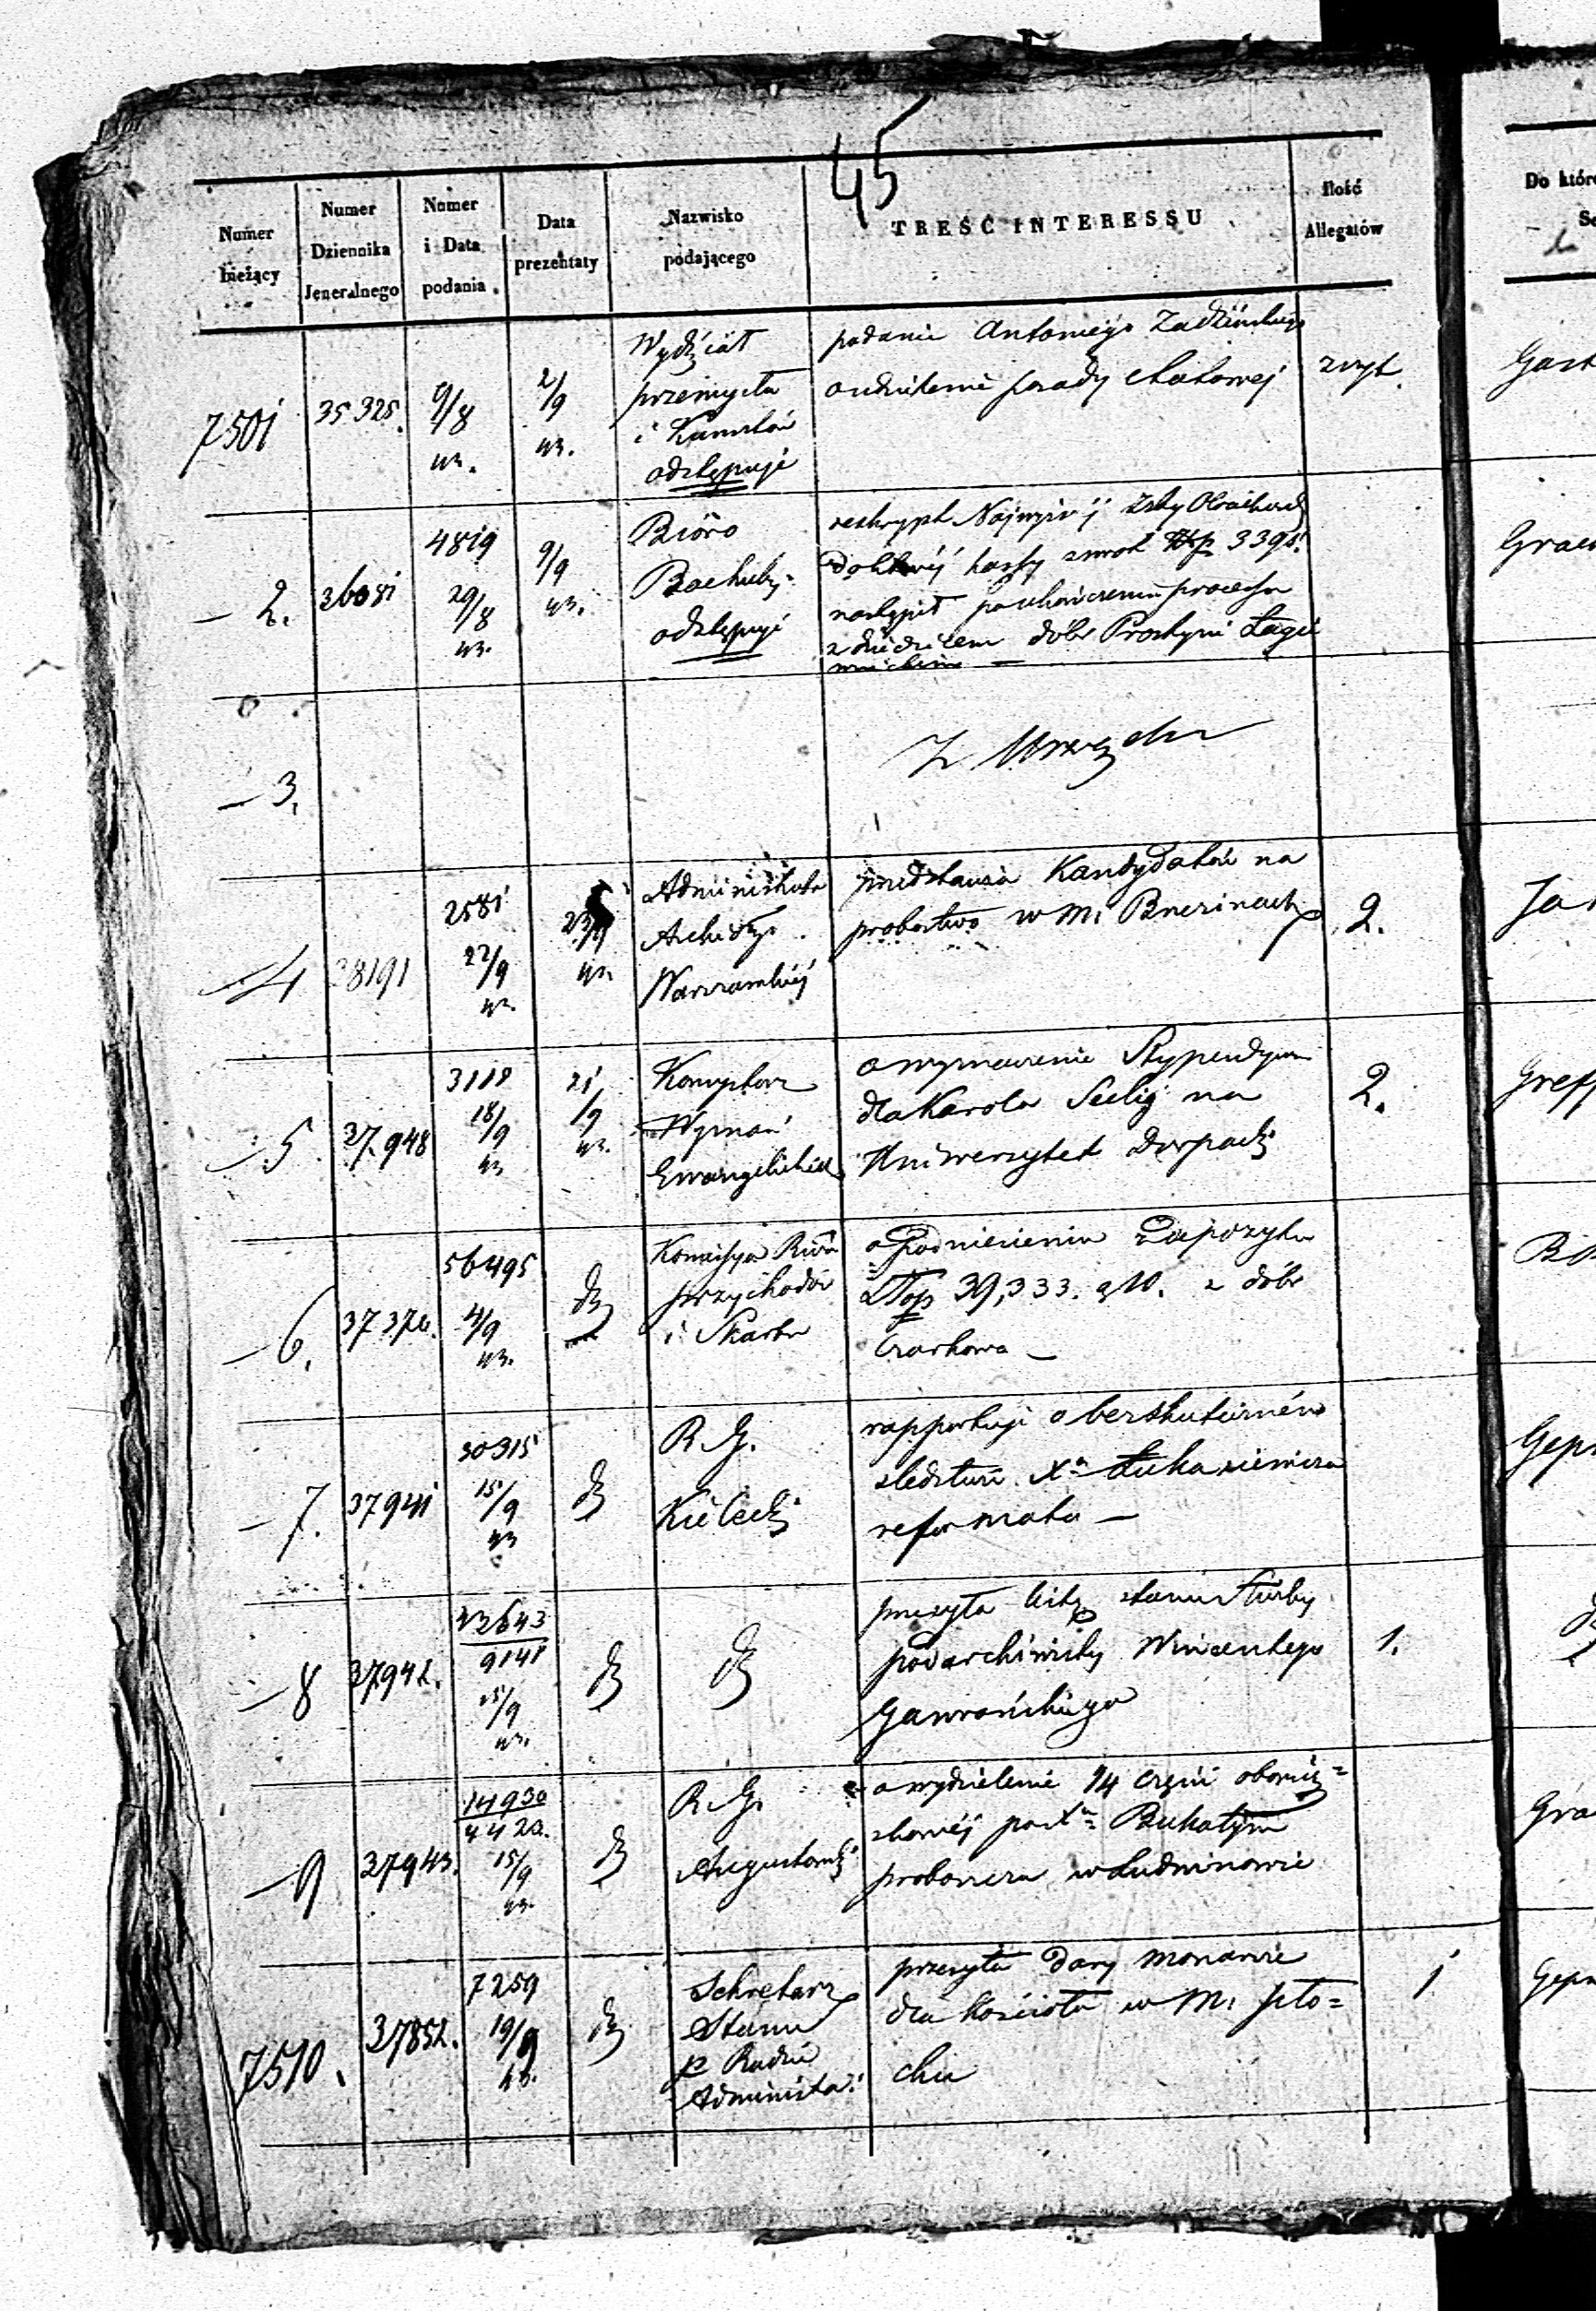 45
Numer bieżący
Numer Dziennika Jeneralnego
Numer i Data podania
Data prezentaty
Nazwisko podającego
TREŚĆ INTERESSU
Ilość Allegatów
Do któr
7501
35325.
9/8
43.
2/9
43.
Wydział
przemysłu
i Kunsztów
odstępuje
podanie Antoniego
o udzielenie posady etatowej
zwyt.
Gast
2.
36081
4819
29/8
43.
9/9
43.
Bióro
Rachuby
odstępuje
reskrypt Najwyższej Izby Obrachund
kassy zwrot 339
nastąpił po ukończeniu processu
z dziedzicem dóbr Prostyni Łagie
wnickim —
3.
Z Urzędu
4
38191
2581
22/9
43.
23/9
43
Administrator
Archidy.
Warszawskiej
przedstawia Kandydatów na
probostwo w M. Brzezinach
2.
Ja
5
37.948
3118
18/9
43
21/9
43.
Konsystorz
Wyznań
Ewangelickich
o wyznaczenie Stypendyum
dla Karola Seelig na
Uniwersytet Dorpacki
2.
Greff
6.
37376.
56495
4/9
43.
d
Komissya Rzdo
przychodów
i Skarbu
o podniesieniu Depozytu
Złop 39,333. g 10. z dóbr
Czarkowa —
7.
37941
30315
15/9
43
d
R. G.
Kielecki
rapportuje o bezskuteczném
śledztwie Xa Łukasiewicza
reformata —
Gepn
8
37942.
43643
9148
15/9
43.
d
d
przesyła listę stanu służby
podarchiwisty Wincentego
Gawrońskiego
1.
9
37943.
14930
4423.
15/9
43.
d
R. G.
Augustowski
o wydzielenie 1/4 części
po Xu Bukatym
proboszczu w Ludwinowie
Gra
7510.
37852.
7259
19/9
43.
d
Sekretarz
Stanu
p Radzie
Administra:
przesyła dary monarsze
dla kościoła w M. Pło=
cku
1
Gepn